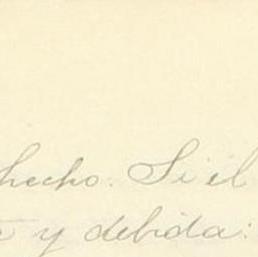 hecho. Si el
y debida: